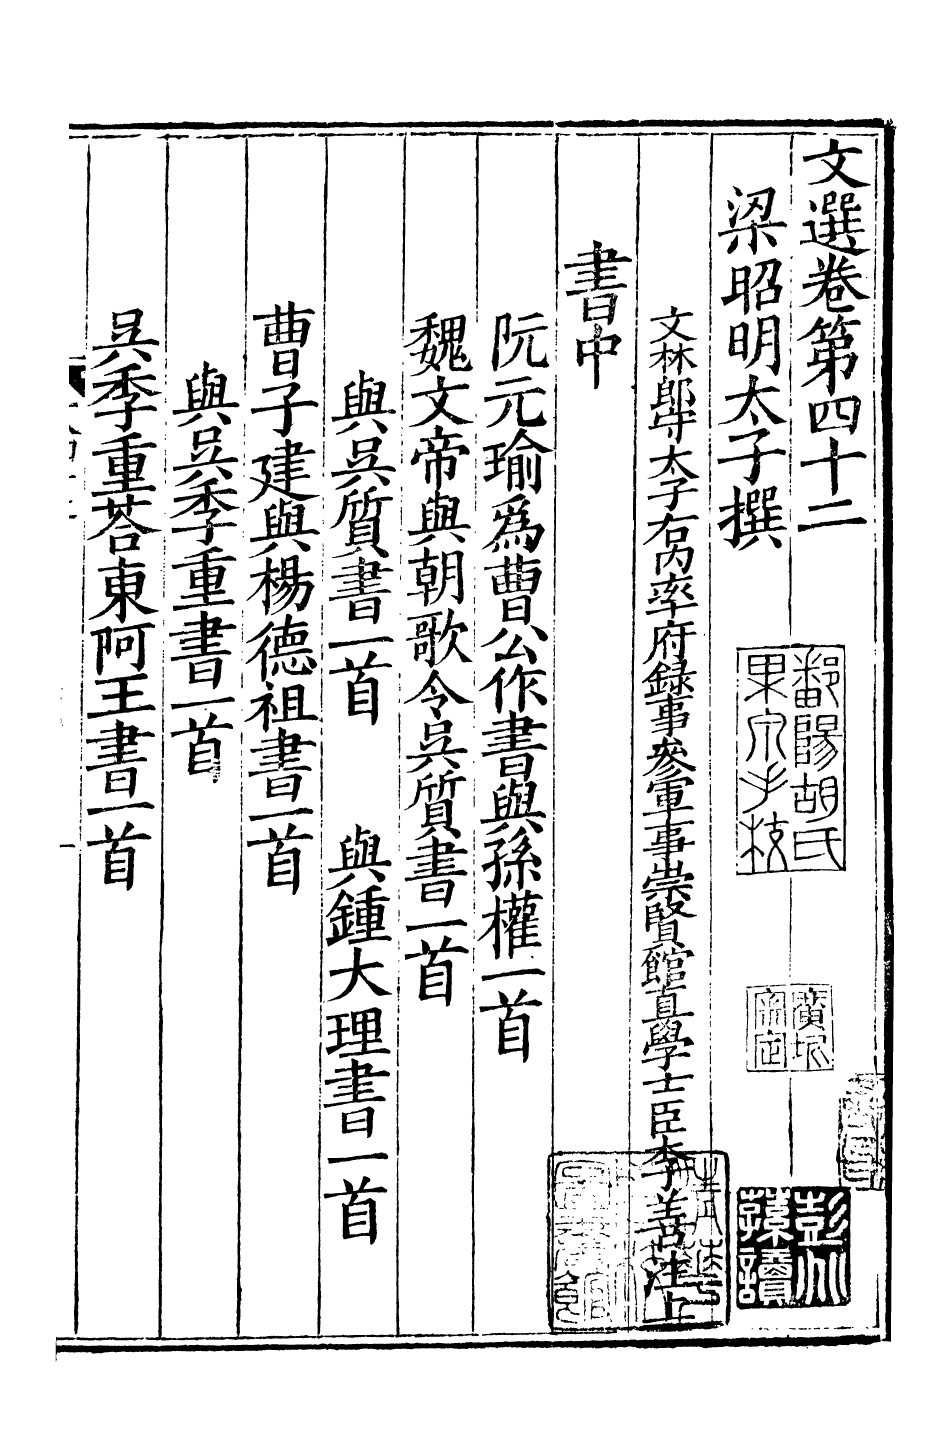 文選卷第四十二
梁昭明太子撰
文林郎守太子右内率府録事參軍事崇賢館直學士臣李善注上
書中
阮元瑜爲曹公作書與孫權一首
魏文帝與朝歌令吳質書一首
與吳質書一首　與鍾大理書一首
曹子建與楊德祖書一首
與吳季重書一首
吳季重荅東阿王書一首
鄱陽胡氏
果泉手校
彭州
孫讀